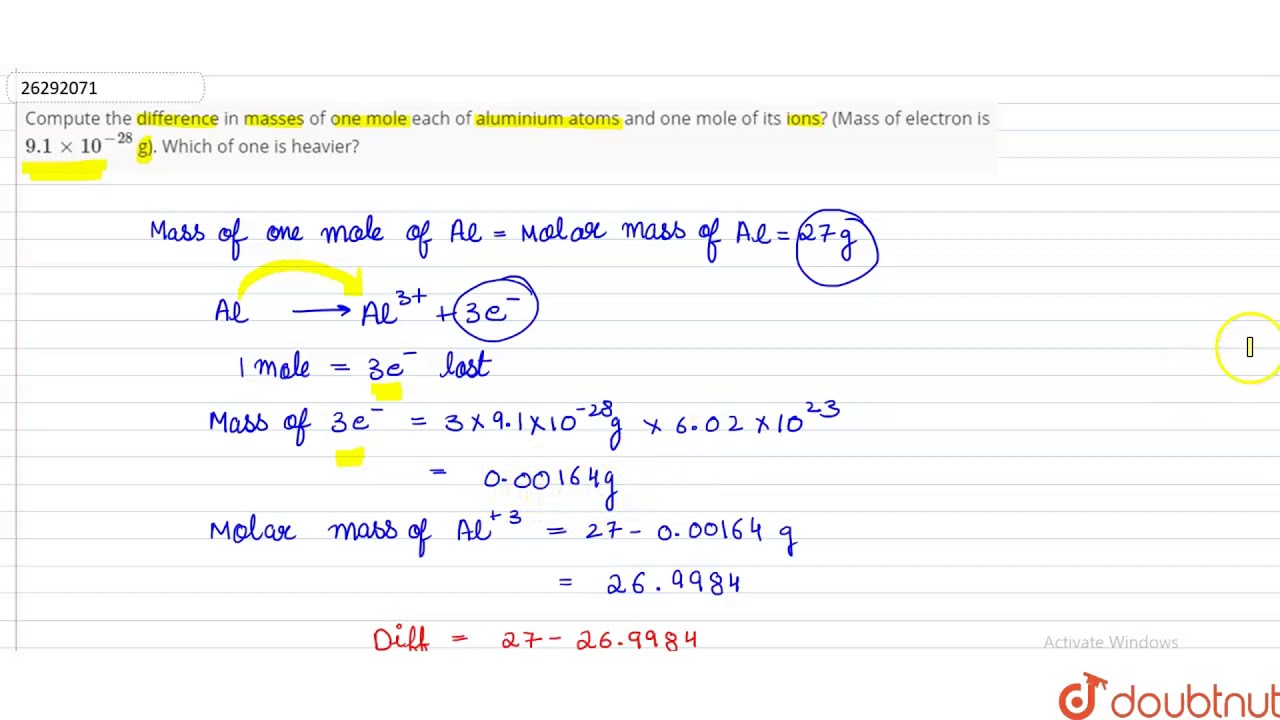 26292071
Compute the difference in masses of one mole each of aluminium atoms and one mole of its ions? (Mass of electron is
9.1 × 10⁻²⁸ g). Which of one is heavier?
Mass of one mole of Al = Molar mass of Al = 27g
Al ⟶ Al³⁺ + 3e⁻
1 mole = 3e⁻ lost
Mass of 3e⁻ = 3×9.1×10⁻²⁸g × 6.02×10²³
= 0.00164g
Molar mass of Al⁺³ = 27 - 0.00164 g
= 26.9984
Diff = 27 - 26.9984
Activate Windows
doubtnut